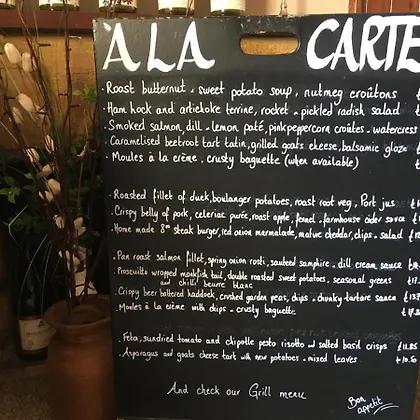 À LA CARTE
· Roast butternut - sweet potato soup, nutmeg croûtons £
· Ham hock and artichoke terrine, rocket - pickled radish salad £
· Smoked salmon, dill - lemon paté, pink peppercorn croûtes - watercress
· Caramelised beetroot tart tatin, grilled goats cheese, balsamic glaze £
· Moules à la crème, crusty baguette (when available) £
· Roasted fillet of duck, boulanger potatoes, roast root veg, Port jus £
· Crispy belly of pork, celeriac purée, roast apple, fennel - farmhouse cider sauce £
· Home made 8oz steak burger, red onion marmalade, mature cheddar, chips - salad £
· Pan roast salmon fillet, spring onion rosti, sauteed samphire, dill cream sauce
· Proscuitto wrapped monkfish tail, double roasted sweet potatoes, seasonal greens £17.
and chilli beurre blanc
· Crispy beer battered haddock, crushed garden peas, chips - chunky tartare sauce £13
· Moules à la crème with chips - crusty baguette
· Feta, sundried tomato and chipotle pesto risotto with salted basil crisps £11.85
· Asparagus and goats cheese tart with new potatoes - mixed leaves
And check our Grill menu
Bon
appetit